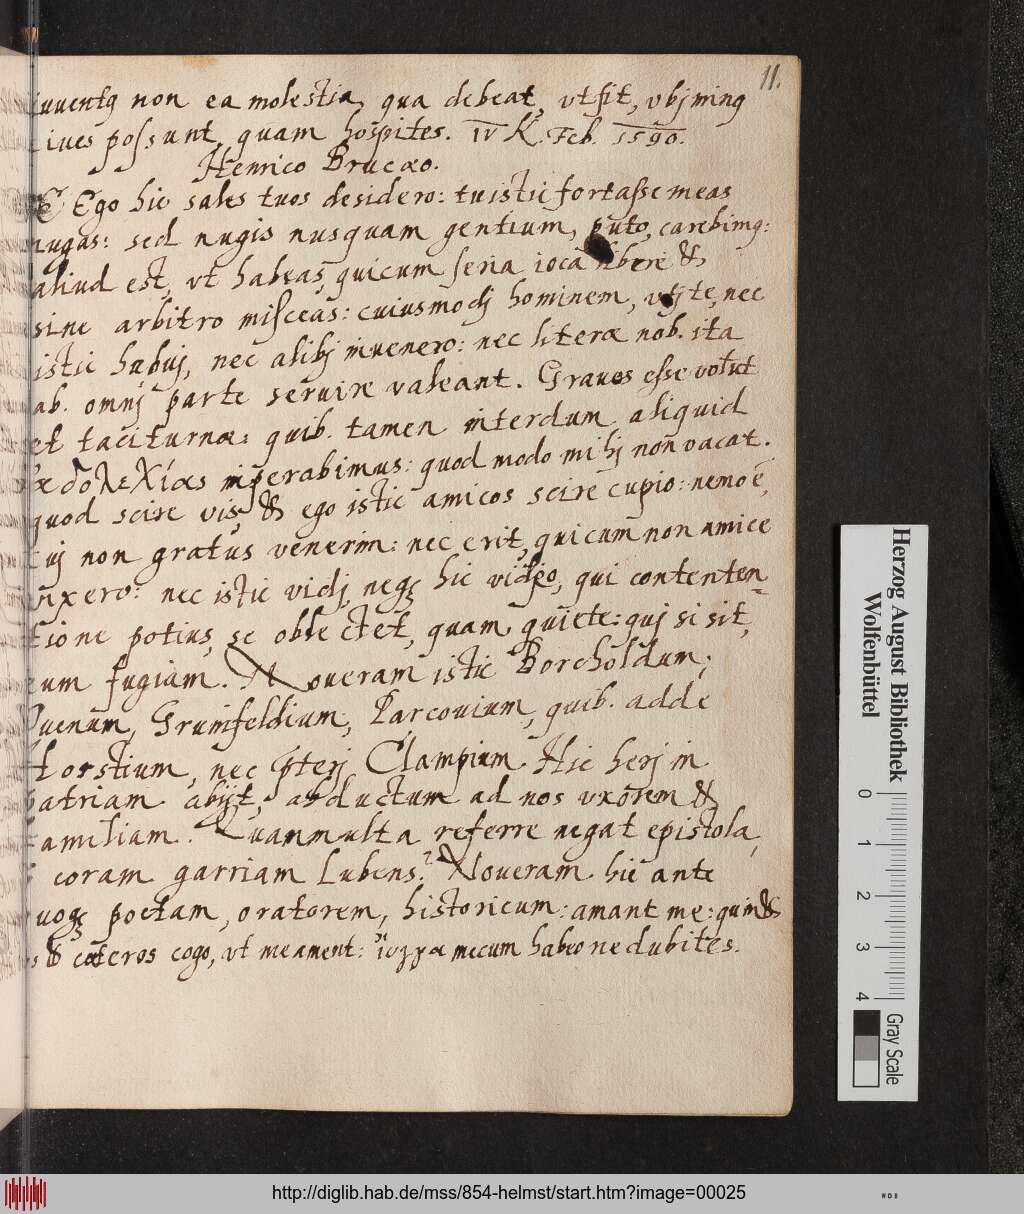 11.
iuuentꝗ non ea molestia, qua debeat, vt fit, vbj minꝗ
ciues possunt, quam hospites. IV K. Feb. 1590.
Henrico Brucæo.
Ego hic sales tuos desidero: tu istic fortasse meas
nugas: sed nugis nusquam gentium, puto, carebimꝗ:
aliud est, vt habeas, quicum seria ioca libere &
sine arbitro misceas: cuiusmodj hominem, vt te, nec
istic habuj, nec alibj inuenero: nec literæ nob. ita
ab. omnj parte seruire valeant. Graues esse volūt
et taciturnæ: quib. tamen interdum aliquid
ἀδολεχίας insperabimus: quod modo mihj non vacat.
quod scire vis, & ego istic amicos scire cupio: nemo ē,
cuj non gratus venerim: nec erit, quicum non amice
vixero: nec istic vidj, neqꝫ hic video, qui contenten-
tione potius, se oblectet, quam quiete: quj si sit,
eum fugiam. Noueram istic Borcholdum,
Duenum, Grunfeldium, Parcouium, quib. adde
Horstium, nec pterj Clampium. Hic herj in
patriam abijt, abductum ad nos vxorem &
familiam. Quam multa referre negat epistola,
coram garriam lubens? Noueram hic ante
uoqꝫ poetam, oratorem, historicum: amant me: quin &
os & cæteros cogo, vt me ament: mecum habeo ne dubites.
Herzog August Bibliothek
Wolfenbüttel
0 1 2 3 4
Gray Scale
http://diglib.hab.de/mss/854-helmst/start.htm?image=00025